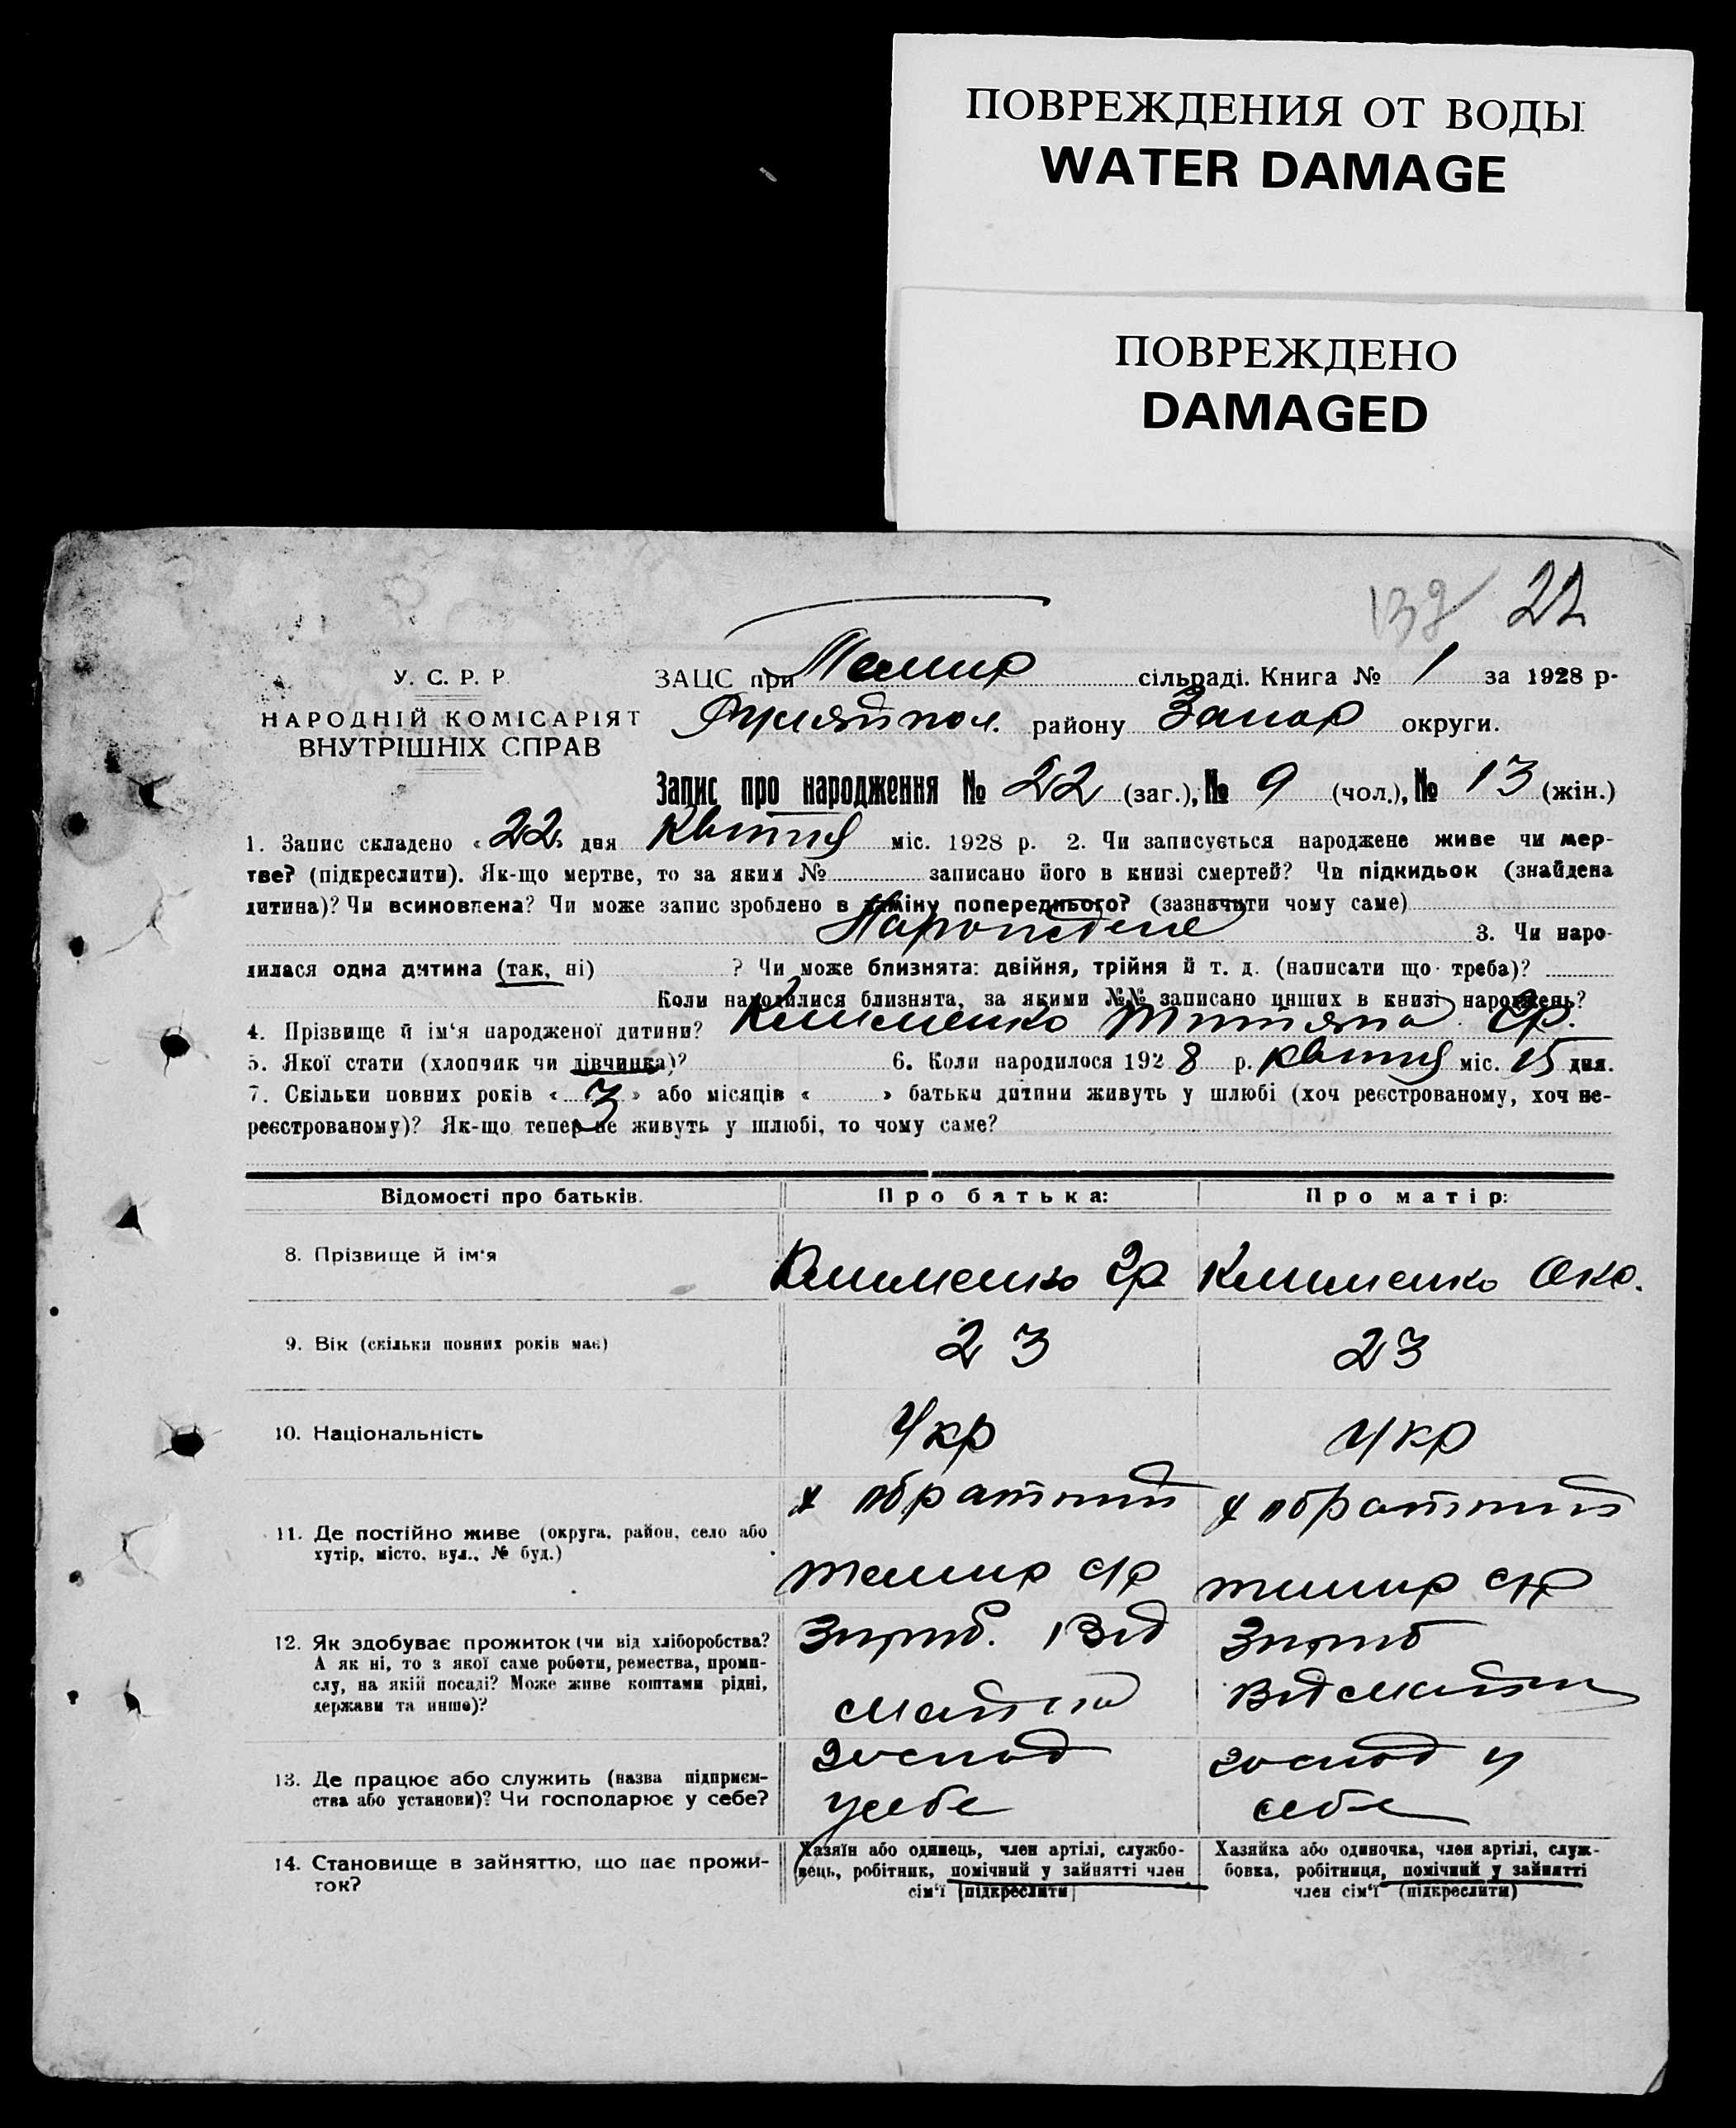 ПОВРЕЖДЕНИЯ ОТ ВОДЫ
WATER DAMAGE
ПОВРЕЖДЕНО
DAMAGED
139 22
У. С. Р. Р.
НАРОДНІЙ КОМІСАРІЯТ
ВНУТРІШНІХ СПРАВ
ЗАЦС при Темир сільраді. Книга № 1 за 1928 р-
Гуляйпол. району Запор округи.
Запис про народження № 22 (заг.), № 9 (чол.), № 13 (жін.)
1. Запис складено «22» дня Квітня міс. 1928 р. 2. Чи записується народжене живе чи мер-
тве? (підкреслити). Як-що мертве, то за яким № записано його в книзі смертей? Чи підкидьок (знайдена
дитина)? Чи всиновлена? Чи може запис зроблено в заміну попереднього? (зазначити чому саме)
Народжене 3. Чи наро-
дилася одна дитина (так, ні) ? Чи може близнята: двійня, трійня й т. д. (написати що треба)?
Коли находилися близнята, за якими №№ записано инших в книзі народжень?
4. Прізвище й ім'я народженої дитини? Клименко Титяна Гр.
5. Якої стати (хлопчик чи дівчинка)? 6. Коли народилося 1928 р. квітня міс. 15 дня.
7. Скільки повних років «3» або місяців « » батьки дитини живуть у шлюбі (хоч реєстрованому, хоч не-
реєстрованому)? Як-що тепер не живуть у шлюбі, то чому саме?
Відомості про батьків. Про батька: Про матір:
8. Прізвище й ім'я Клименко Гр Клименко Окс.
9. Вік (скільки повних років має) 23 23
10. Національність Укр Укр
11. Де постійно живе (округа, район, село або
хутір, місто, вул., № буд.)
х обратний х обратний
темир с/р темир с/р
12. Як здобуває прожиток (чи від хліборобства?
А як ні, то з якої саме роботи, ремества, проми-
слу, на якій посаді? Може живе коштами рідні,
держави та инше)?
Від
Від
13. Де працює або служить (назва підприєм-
ства або установи)? Чи господарює у себе?
господ господ у
у себе себе
14. Становище в зайняттю, що дає прожи-
ток?
Хазяїн або одинець, член артілі, службо-
вець, робітник, помічний у зайнятті член
сім'ї (підкреслити)
Хазяйка або одиночка, член артілі, служ-
бовка, робітниця, помічний у зайнятті
член сім'ї (підкреслити)